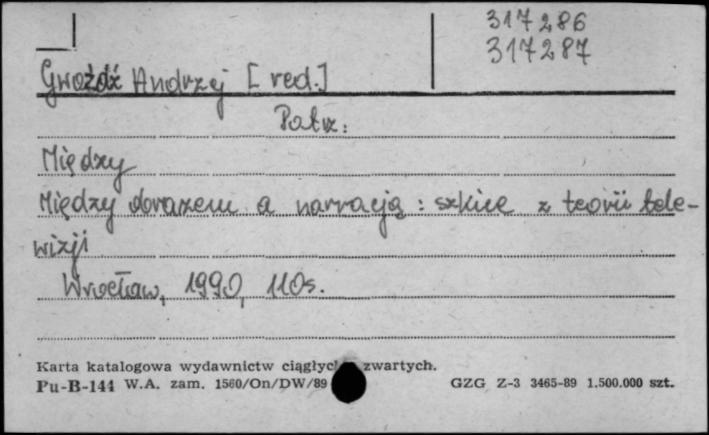 317286
317287
Gwóźdź Andrzej [red.]
Patrz:
Między
Między obrazem a narracją: szkice z teorii tele-
wizji
Wrocław, 1990, 110s.
Karta katalogowa wydawnictw ciągłych zwartych.
Pu-B-144 W.A. zam. 1560/On/DW/89 GZG Z-3 3465-89 1.500.000 szt.